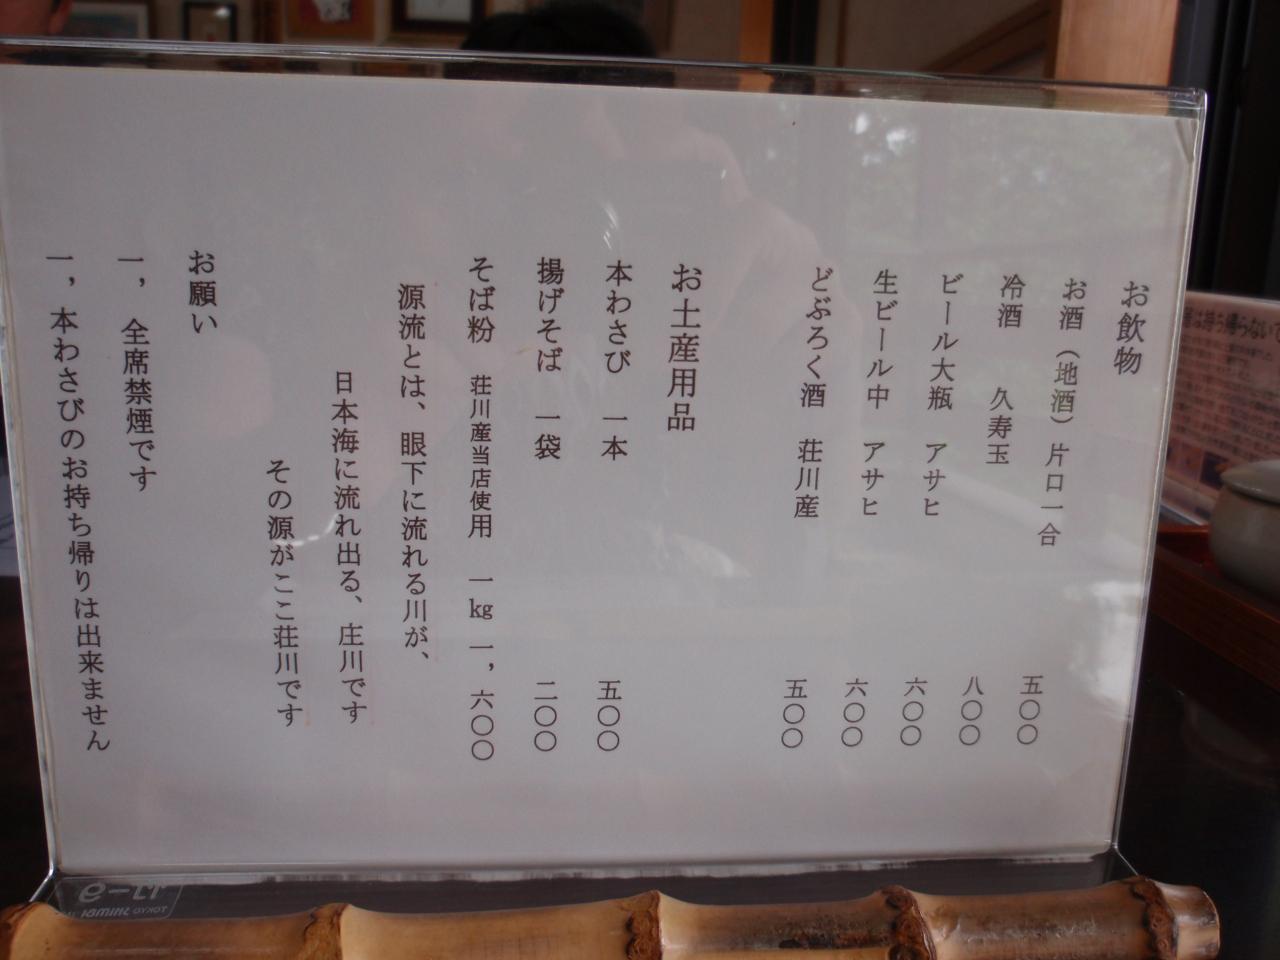 お飲物
お酒（地酒）片口一合　五〇〇
冷酒　久寿玉　八〇〇
ビール大瓶　アサヒ　六〇〇
生ビール中　アサヒ　六〇〇
どぶろく酒　荘川産　五〇〇
お土産用品
本わさび　一本　五〇〇
揚げそば　一袋　二〇〇
そば粉　荘川産当店使用　一kg　一，六〇〇
源流とは、眼下に流れる川が、
日本海に流れ出る、庄川です
その源がここ荘川です
お願い
一，全席禁煙です
一，本わさびのお持ち帰りは出来ません